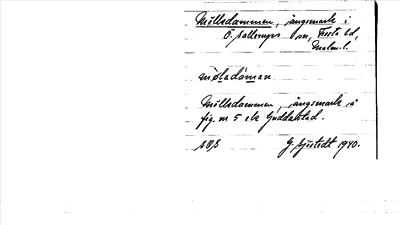 Mölledammen, ängsmark i
Ö. Sallerups sn, Frosta hd,
Malm. l.
möladaman
Mölledammen, ängsmark å
fig. nr 5 s/k Guddastad.
G. Sjöstedt 1940.